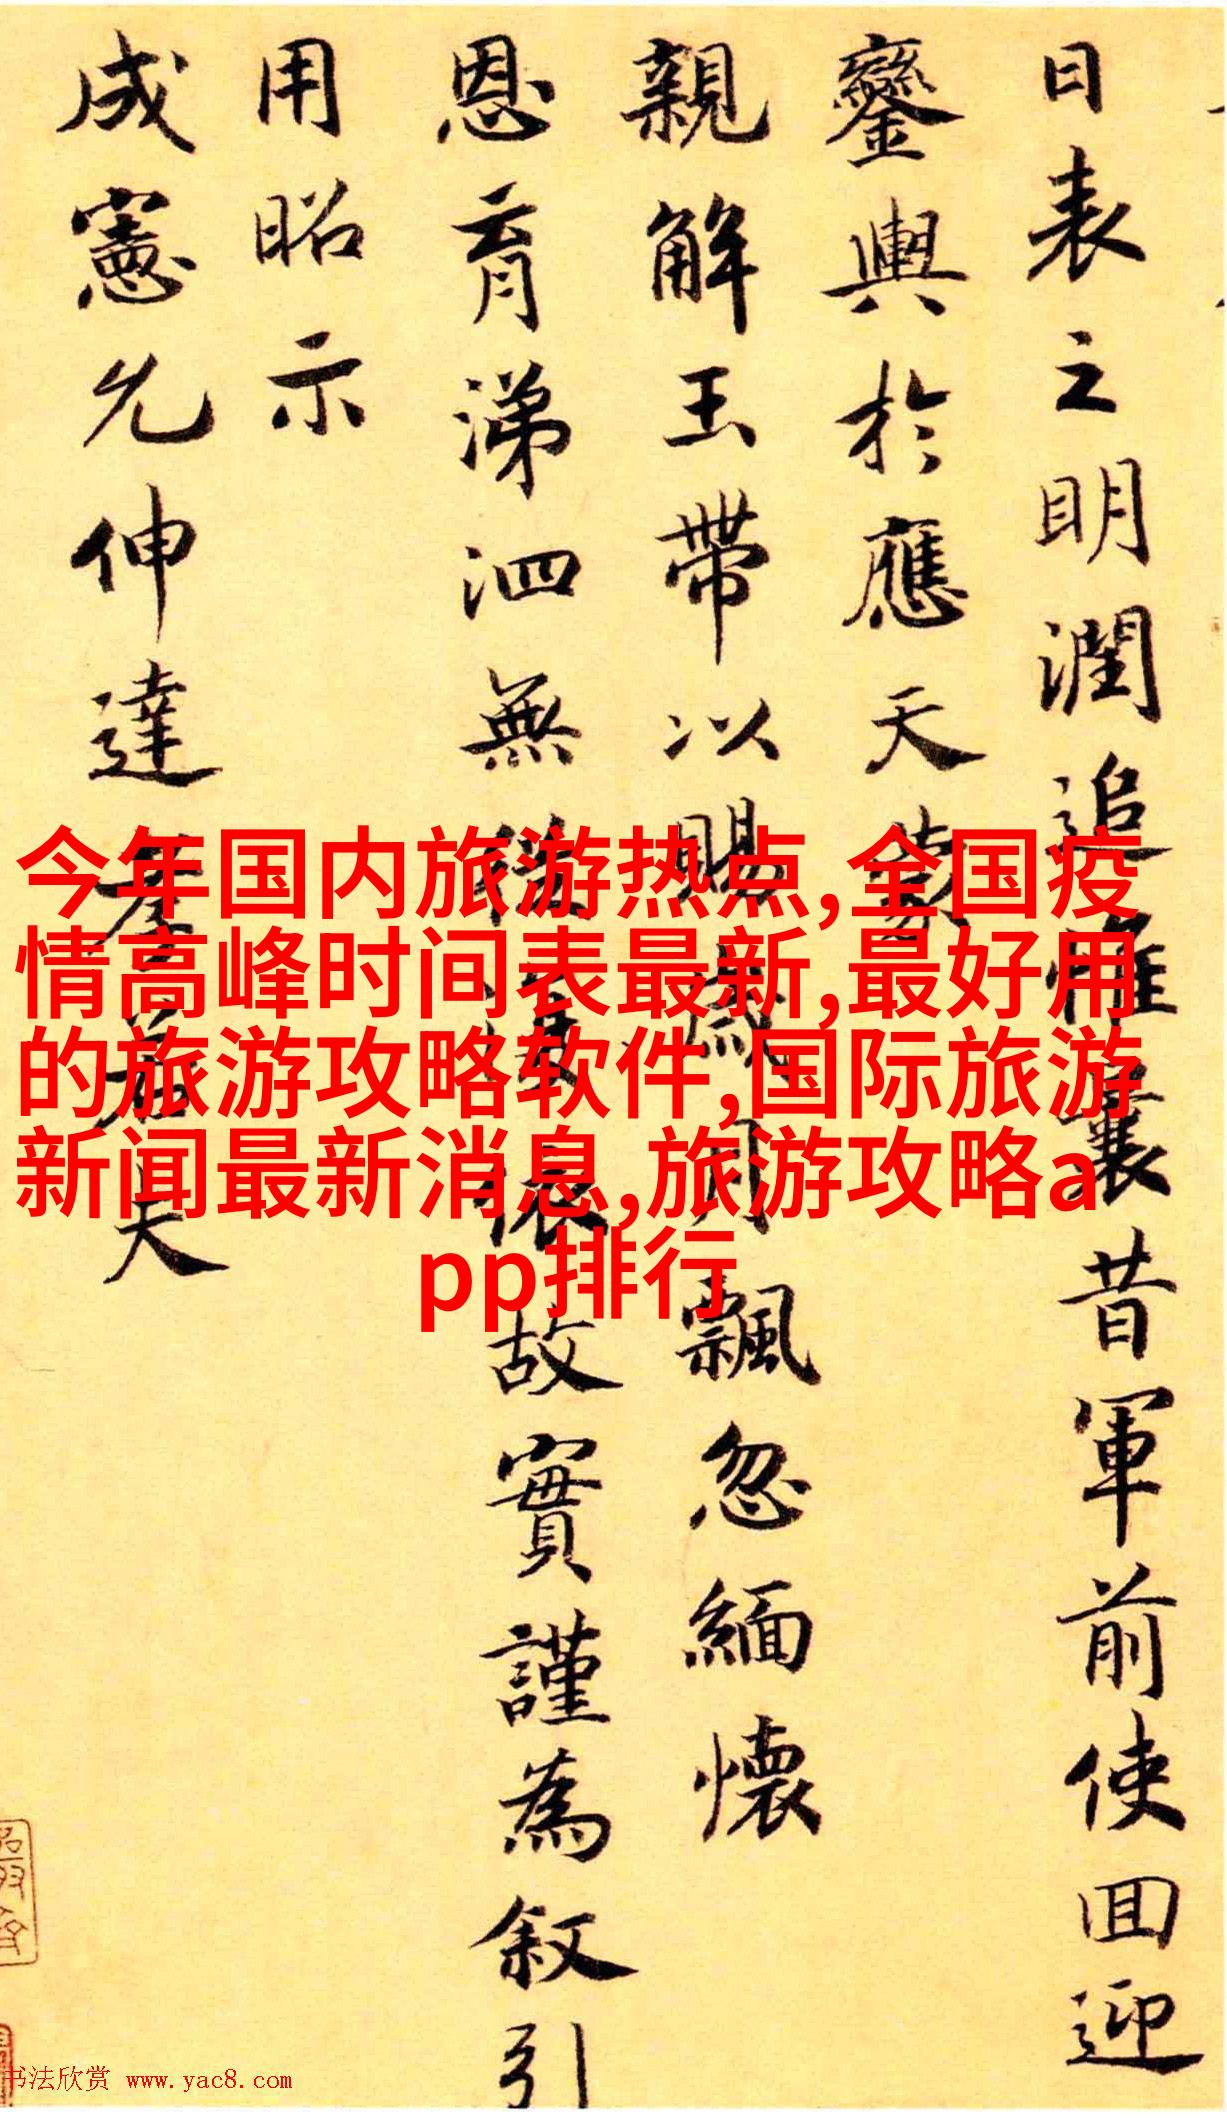 今年国内旅游热点,全国疫
情高峰时间表最新,最好用
的旅游攻略软件,国际旅游
新闻最新消息,旅游攻略a
pp排行
日表之明潤追惟曩昔軍前使回迎
鑾輿於應天蒙
親解玉帶以賜歲月飄忽緬懷
恩育涕泗無依故實謹為叙引
用昭示
成憲允伸達孝若夫
书法欣赏 www.yac8.com